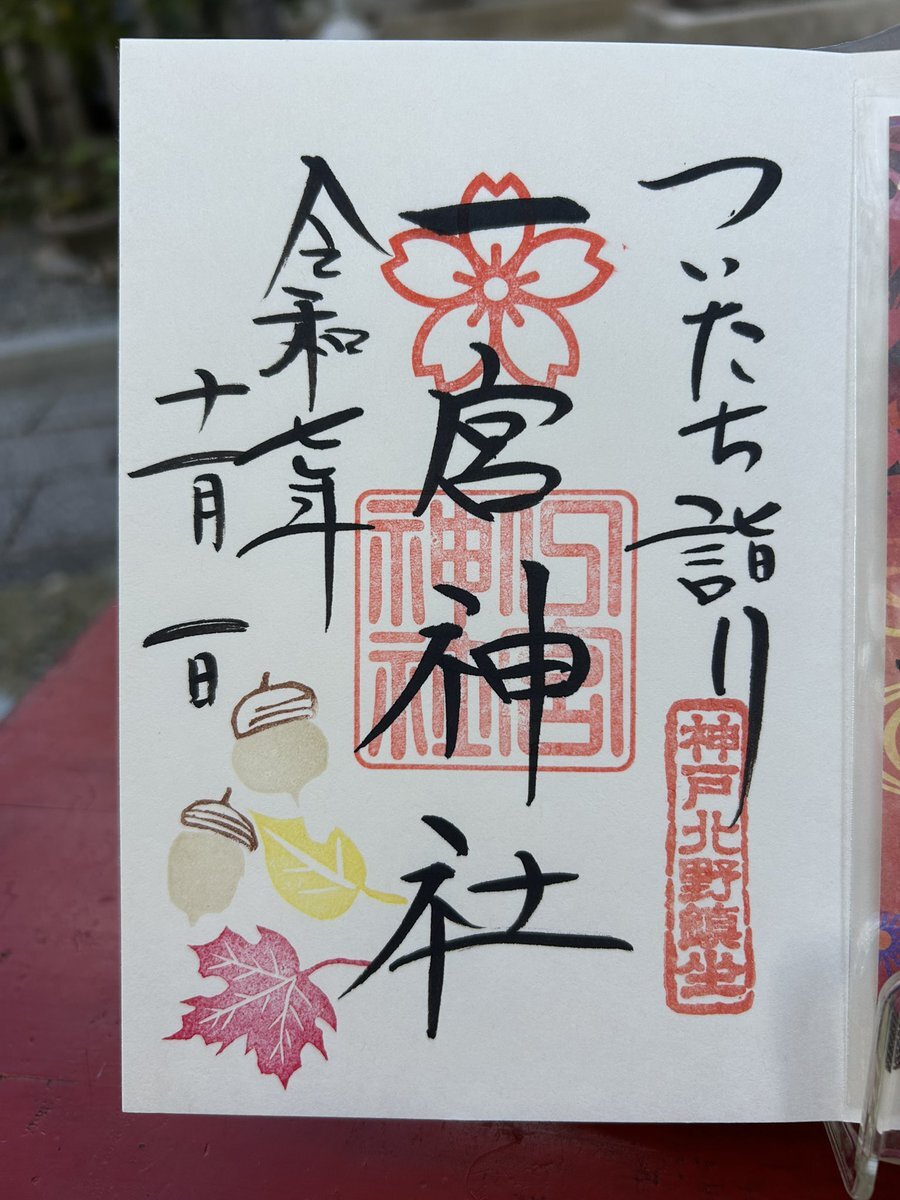 ついたち詣り
神戸北野鎮坐
一宮神社
一宮神社
令和七年
十一月一日